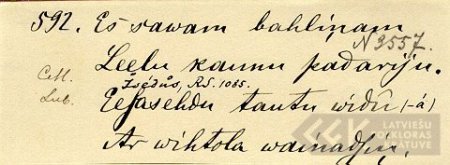 592. Es sawam bahliņam
N 3557.
Leelu kaunu padariju.
Cetl. Žsēdūs, R.S. 1065.
Lub. Eejasehdu tautu widū (-ā)
Ar wihtola wainadziņ,
LATVIEŠU FOLKLORAS KRĀTUVE